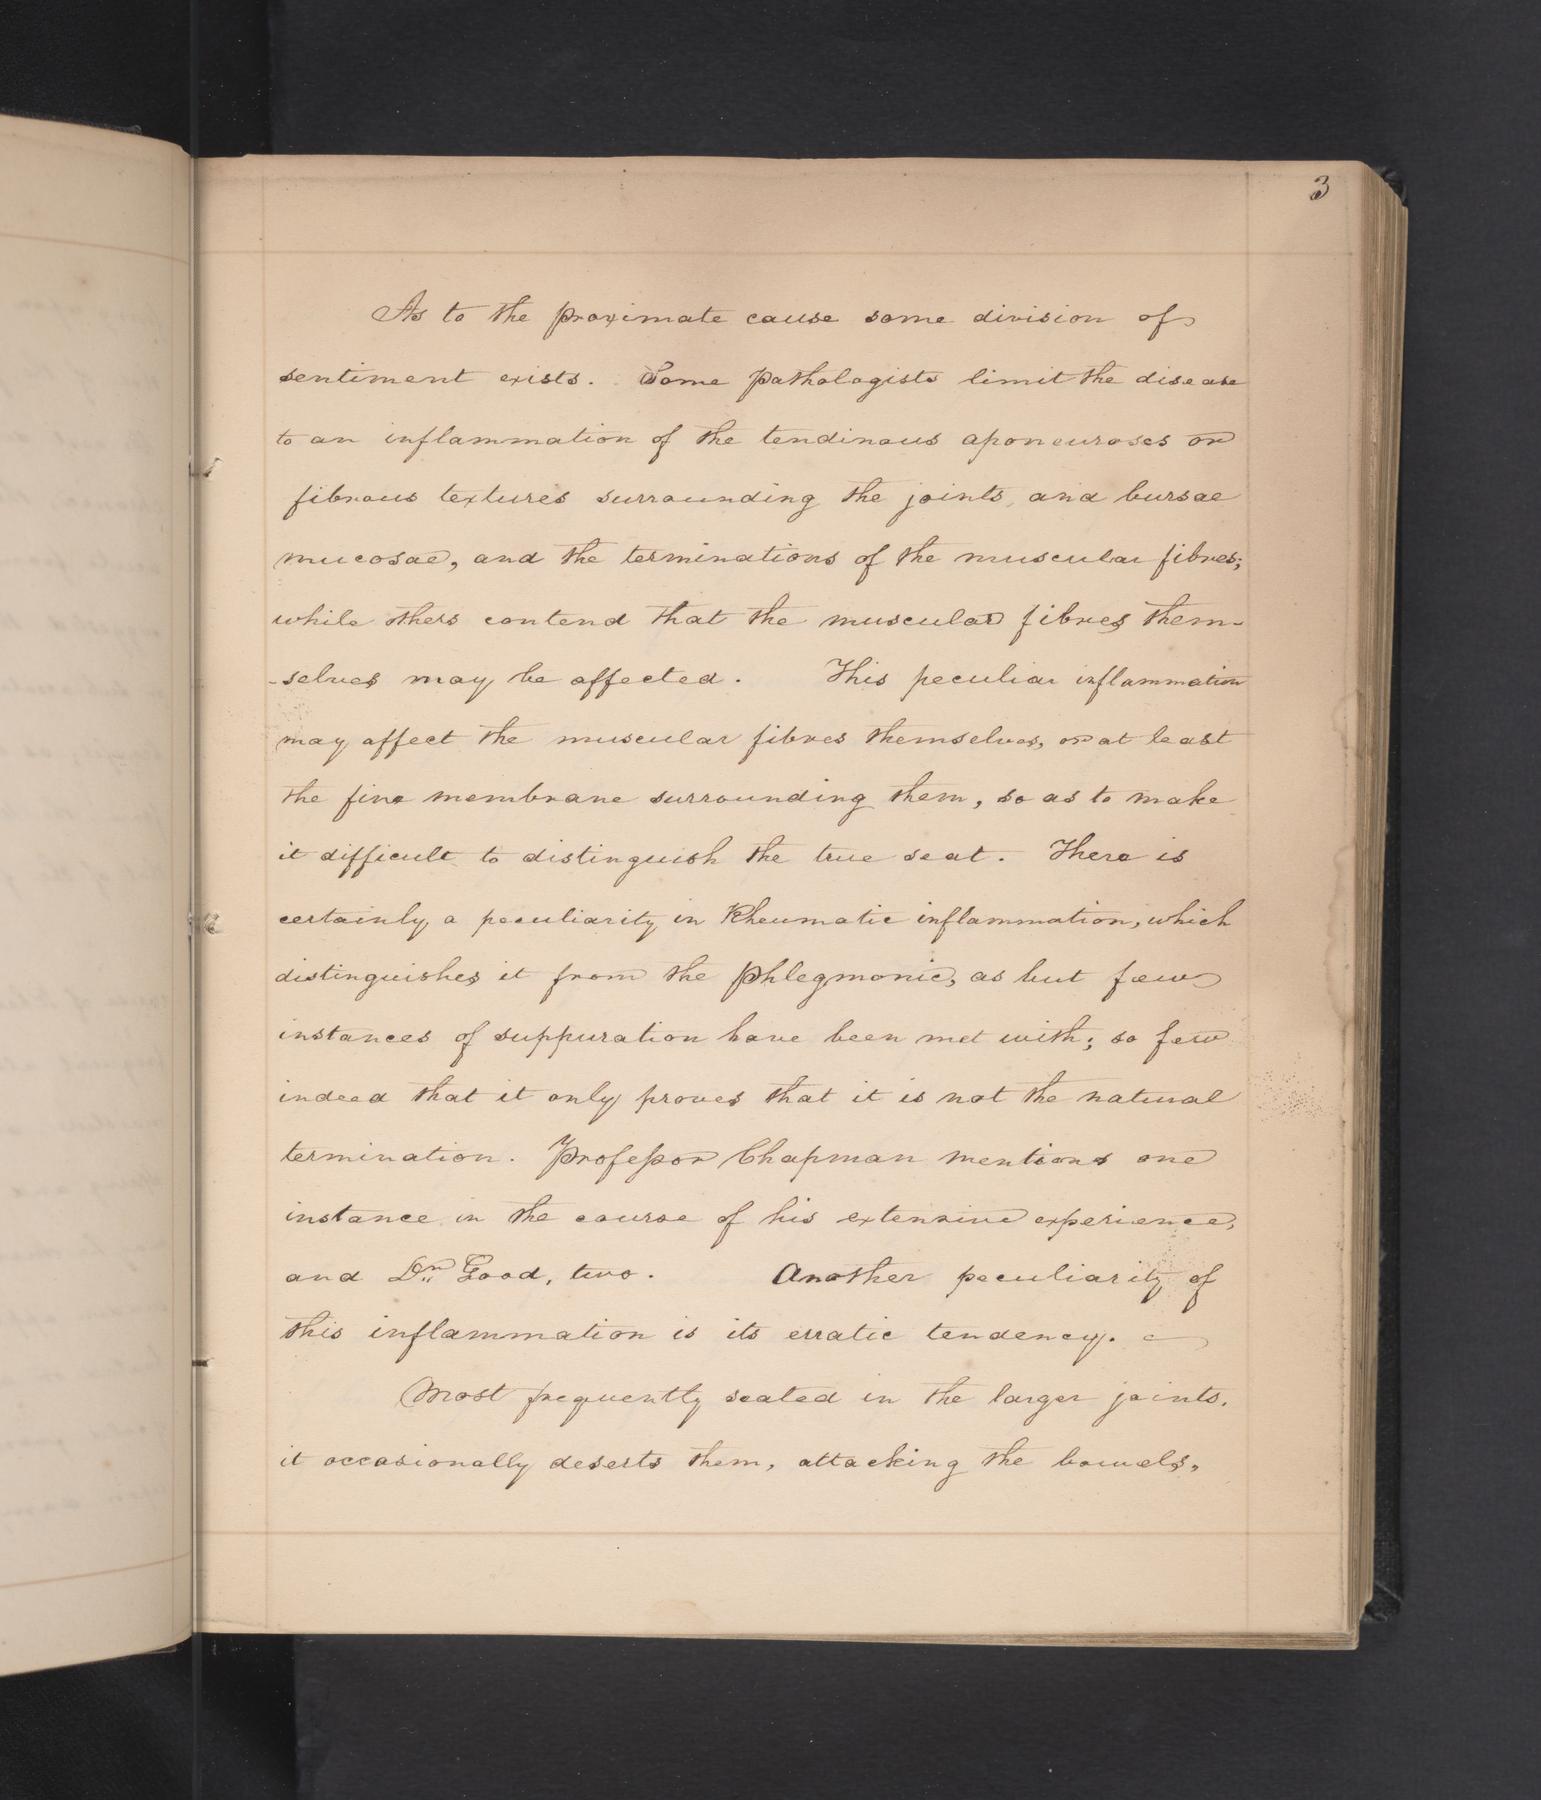 3
As to the proximate cause some division of
sentiment exists. Some pathologists limit the disease
to an inflammation of the tendinous aponeuroses or
fibrous textures surrounding the joints, and bursae
mucosae, and the terminations of the muscular fibres;
while others contend that the muscular fibres them-
-selves may be affected. This peculiar inflammation
may affect the muscular fibres themselves, or at least
the fine membrane surrounding them, so as to make
it difficult to distinguish the true seat. There is
certainly a peculiarity in Rheumatic inflammation, which
distinguishes it from the Phlegmonic, as but few
instances of suppuration have been met with; so few
indeed that it only proves that it is not the natural
termination. Professor Chapman mentions one
instance in the course of his extensive experience,
and Dr. Good, two. Another peculiarity of
this inflammation is its erratic tendency.
Most frequently seated in the larger joints,
it occasionally deserts them, attacking the bowels,